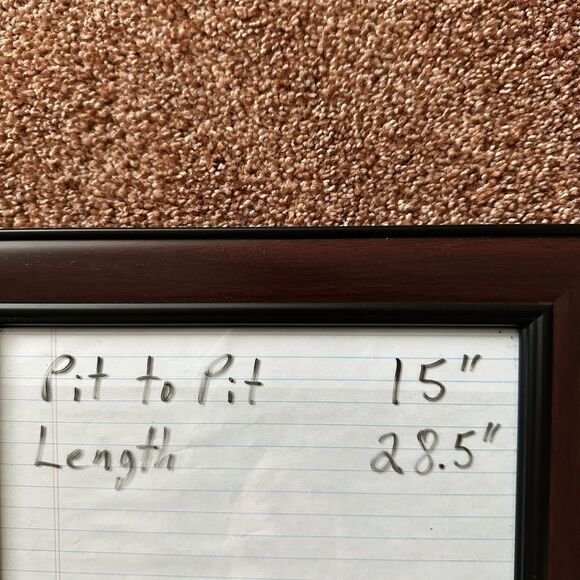 Pit to Pit 15"
Length 28.5"